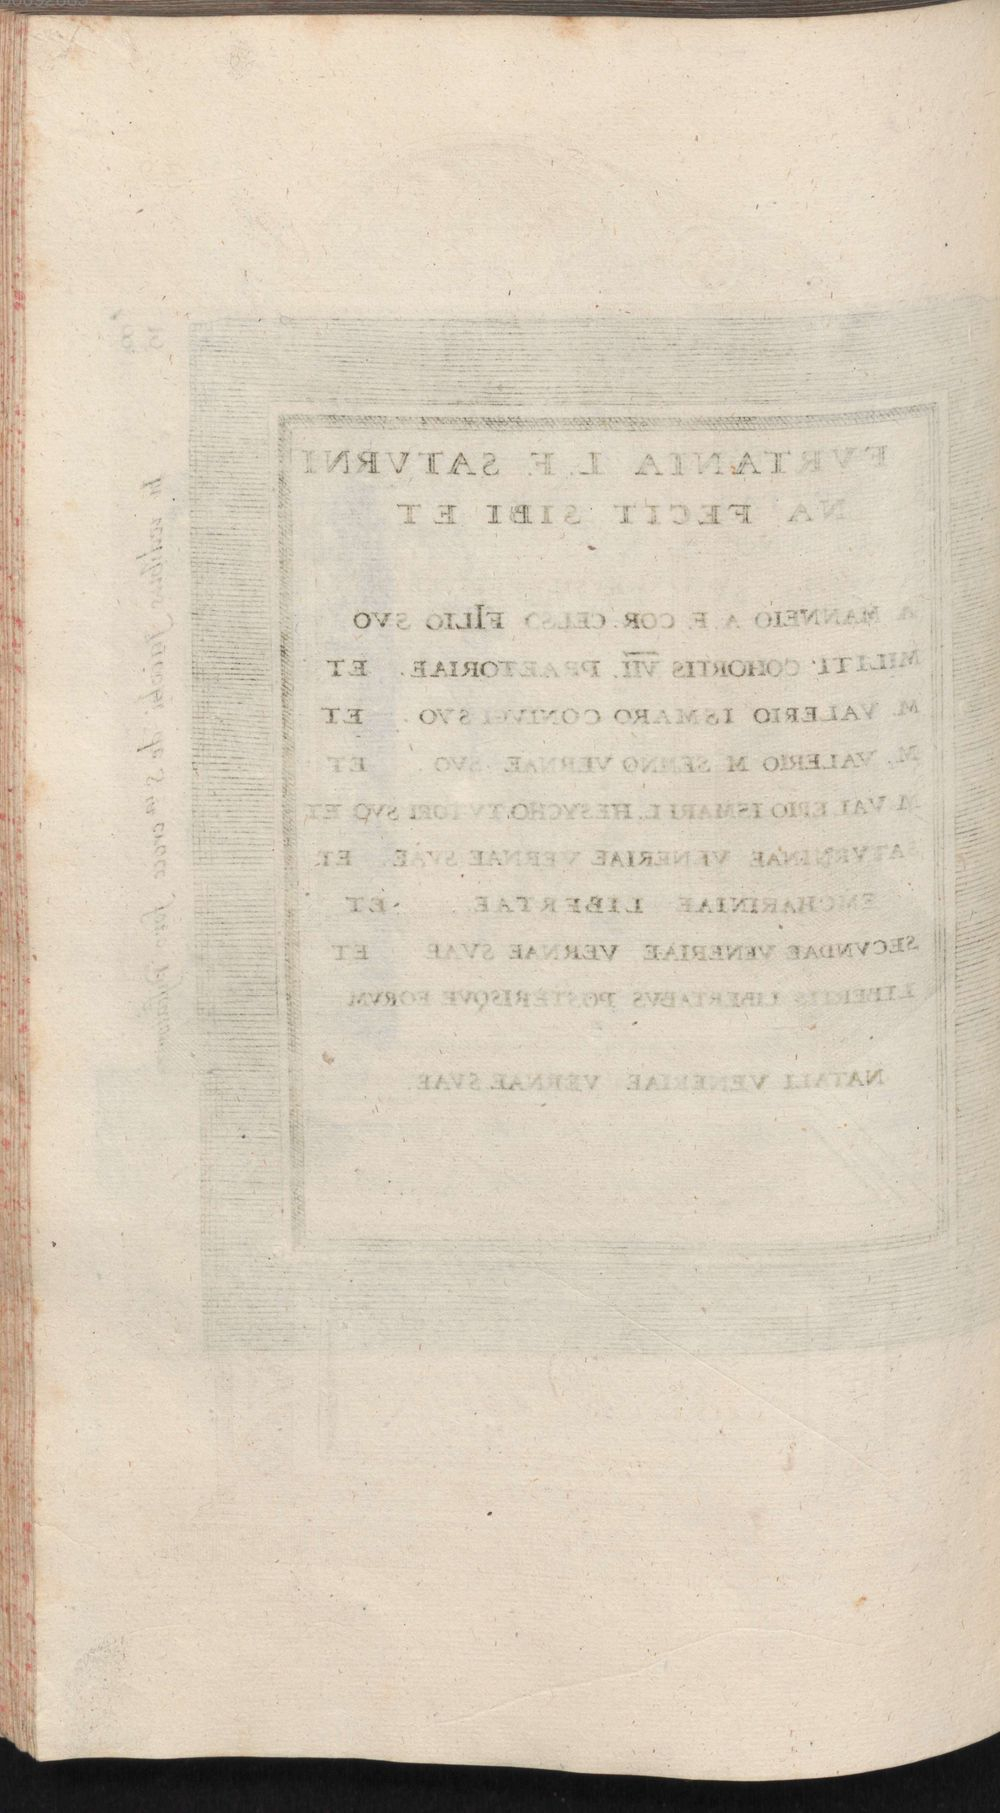 FVRTANIA L. F. SATVRNI
NA FECIT SIBI ET
A MANNEIO A. F. COR. CELSO FILIO SVO
MILITI COHORTIS VII. PRAETORIAE. ET
M. VALERIO ISMARO CONIVGI SVO. ET
M. VALERIO M SENNO VERNAE SVO. ET
M VALERIO ISMARI. L. HESYCHO. TVTORI SVO ET
SATVRNINAE VENERIAE VERNAE SVAE. ET
ENCHARINIAE LIBERTAE. ET
SECVNDAE VENERIAE VERNAE SVAE ET
LIBERTIS LIBERTABVS POSTERISQVE EORVM
NATALI VENERIAE VERNAE SVAE.
In aedibus Jacobi de